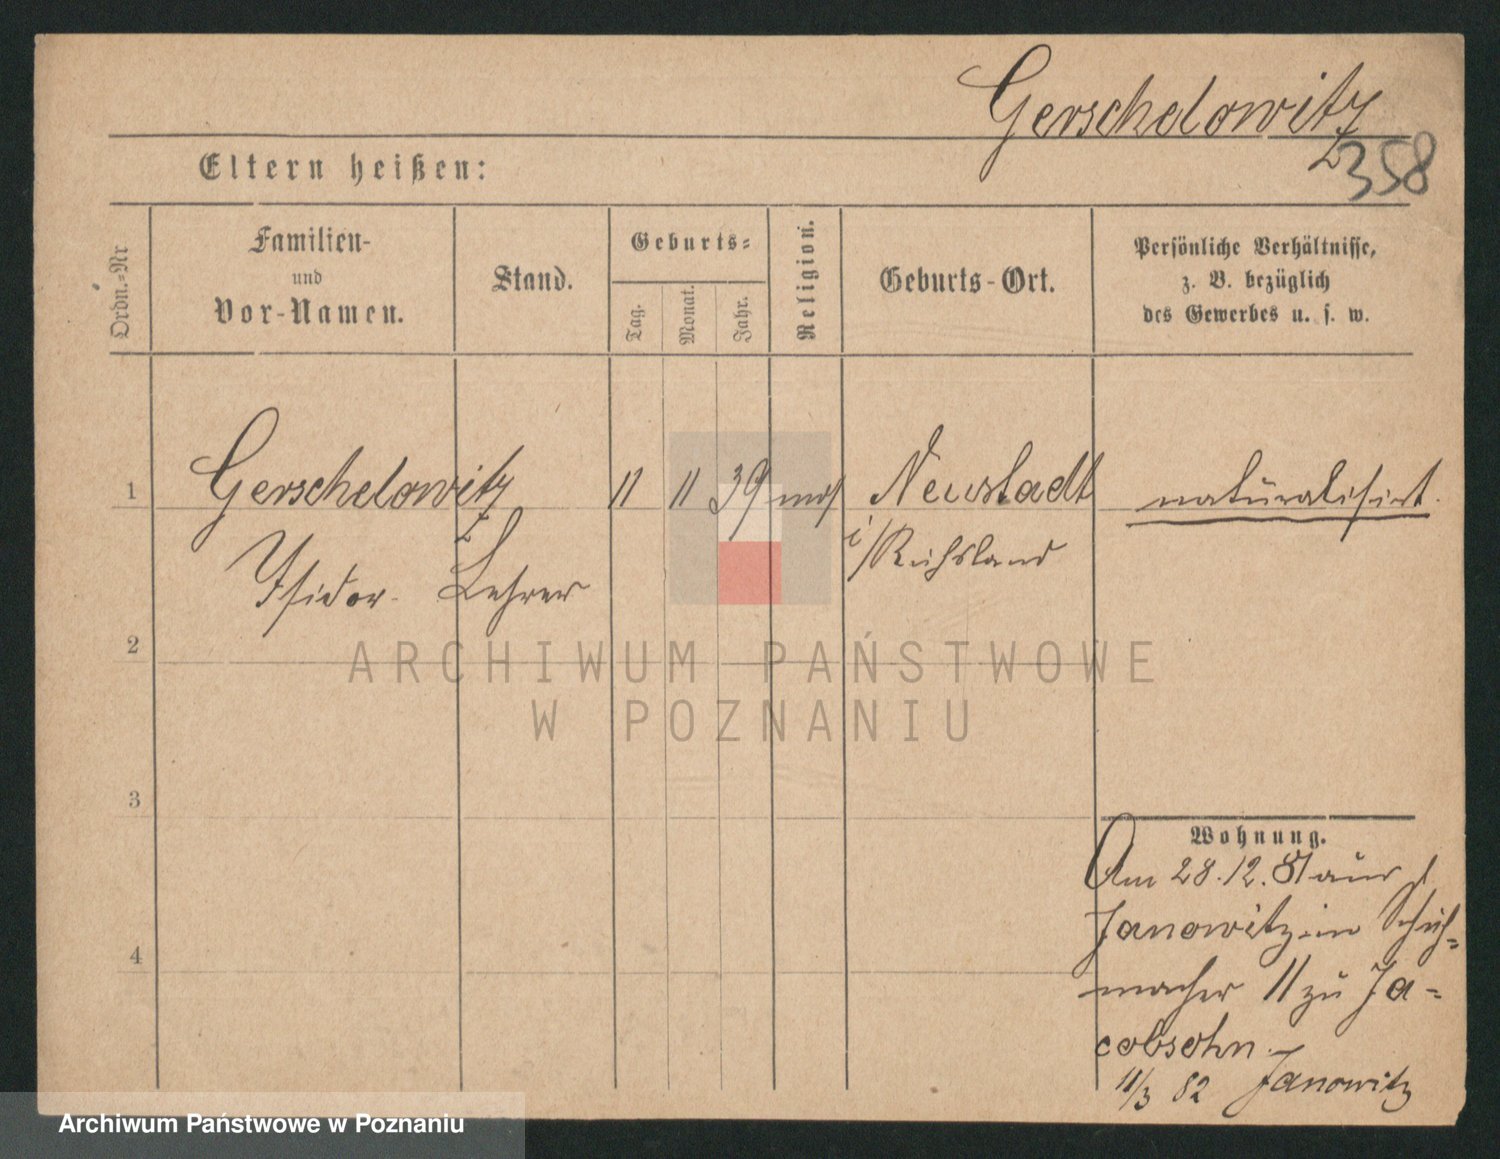 Gerschelowitz
358
Eltern heißen:
Ordn.-Nr
Familien-
und
Vor-Namen.
Stand.
Geburts-
Tag.
Monat.
Jahr.
Religion.
Geburts-Ort.
Persönliche Verhältnisse,
z. B. bezüglich
des Gewerbes u. s. w.
1 Gerschelowitz 11 11 39 mos Neustadt naturalisirt.
Isidor. Lehrer i/Rußland
2
ARCHIWUM PAŃSTWOWE
W POZNANIU
3
Wohnung.
Am 28.12. 81 aus
Janowitz in Schuh-
4
macher 11 zu Ja-
cobsohn.
11/3 82 Janowitz
Archiwum Państwowe w Poznaniu